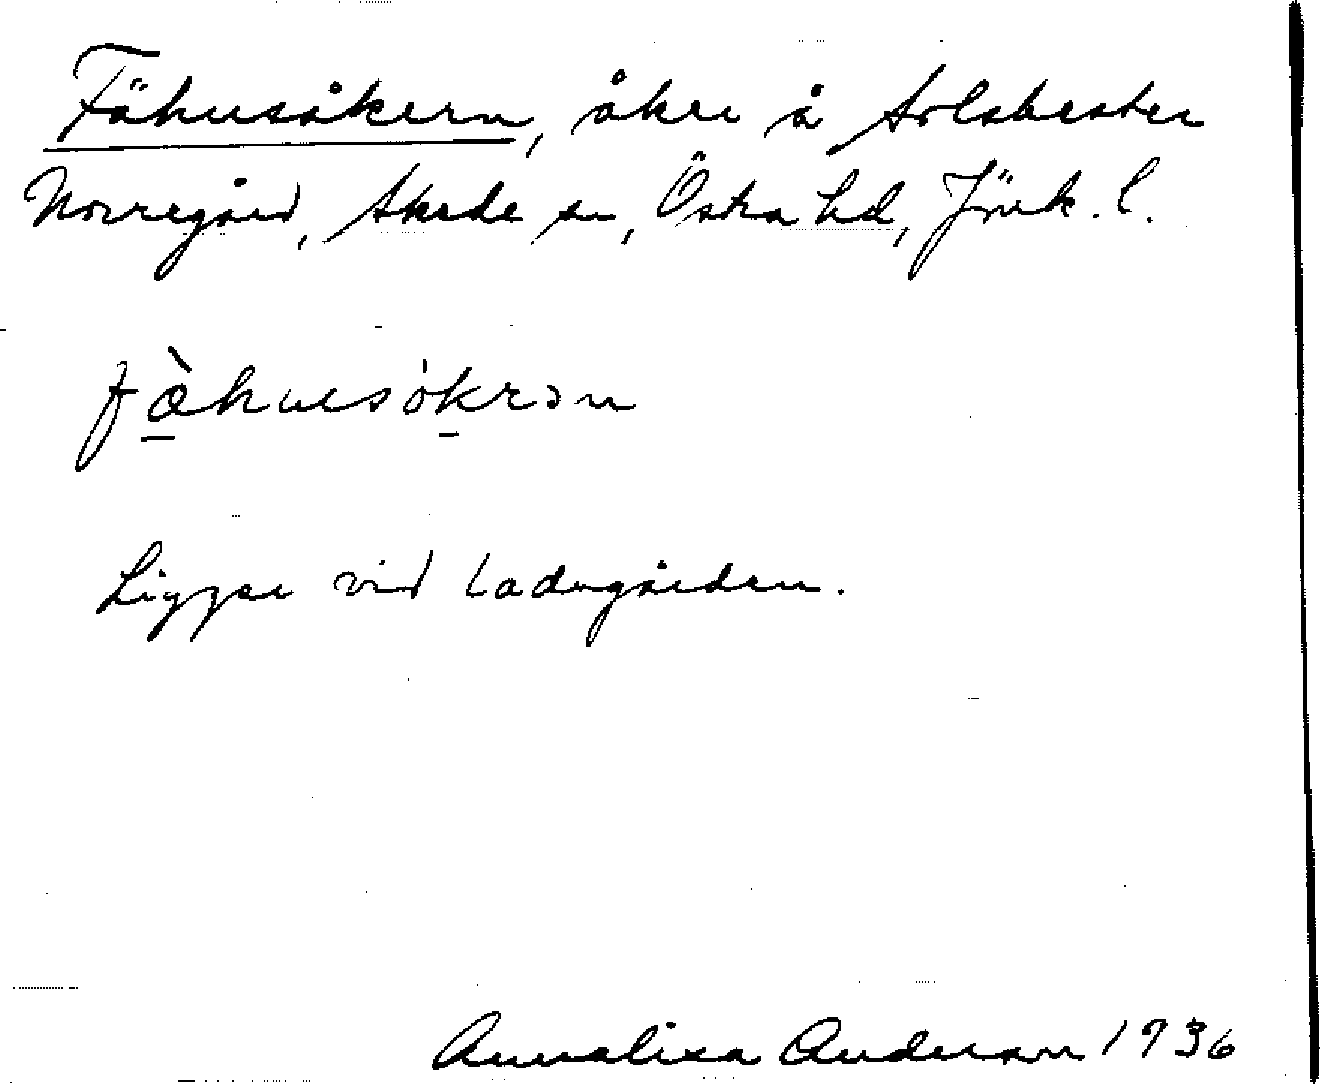 Fähusåkern, åker å Solsbester
Norregård, Skede sn, Östra hd, Jönk. l.
fæ̀husókrən
Ligger vid ladugården.
Annalisa Anderson 1936